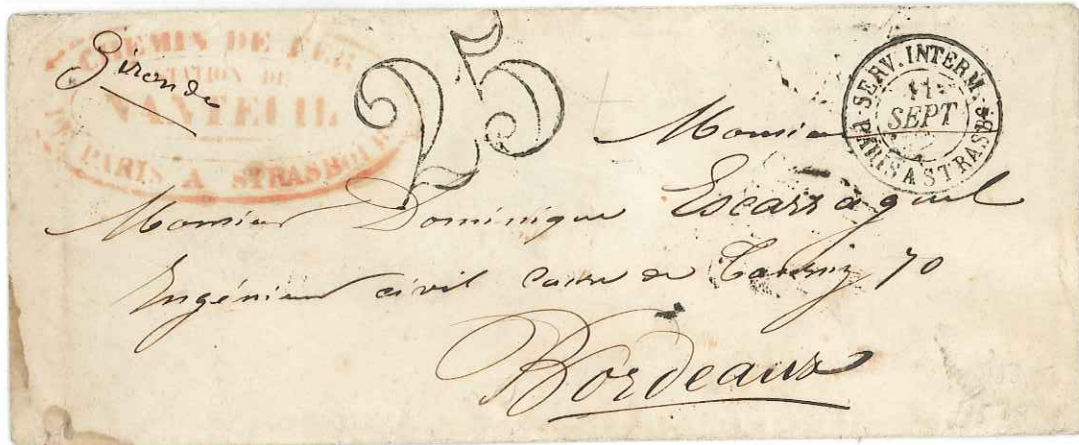 CHEMIN DE FER
STATION DE
NANTEUIL
DE PARIS A STRASBOURG
Gironde
25
SERV. INTERM.
11
SEPT
PARIS A STRASBG
Monsieur
Monsieur Dominique Escarraguel
Ingénieur civil Cours de Tourny 70
Bordeaux